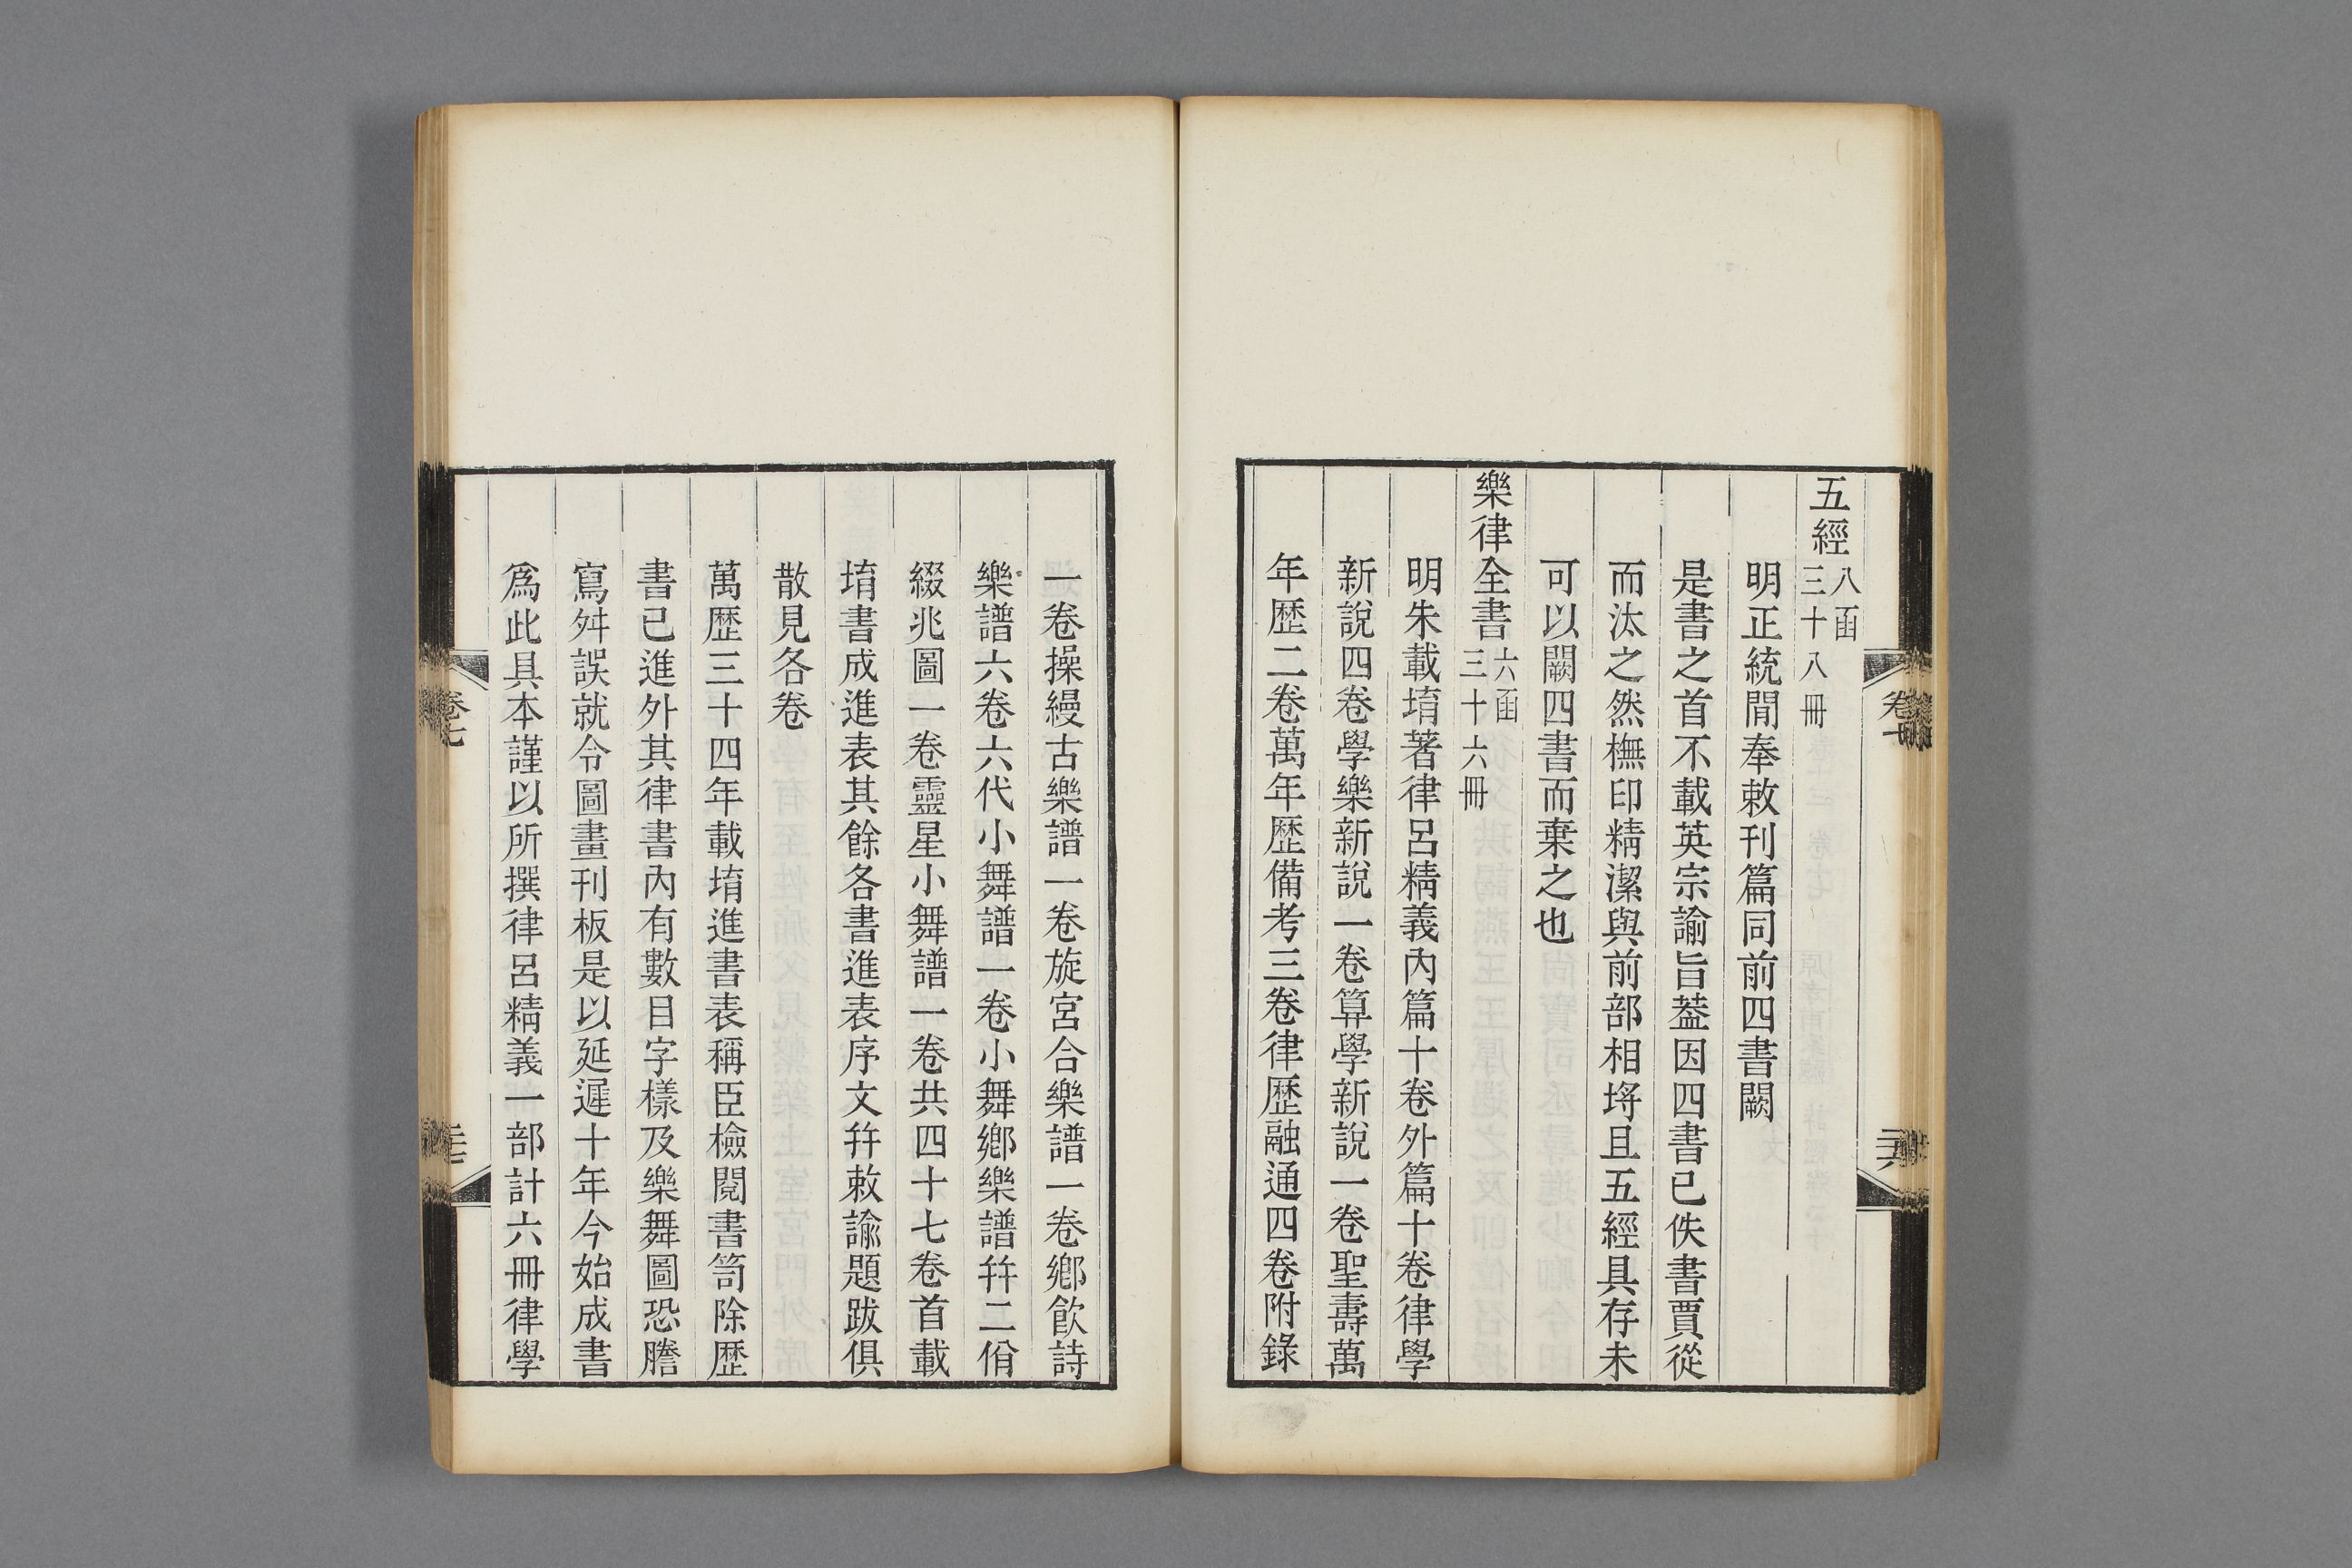 五經八函三十八冊
明正統閒奉敕刊篇同前四書闕
是書之首不載英宗諭旨葢因四書已佚書賈從
而汰之然橅印精潔與前部相埒且五經具存未
可以闕四書而棄之也
樂律全書六函三十六冊
明朱載堉著律呂精義內篇十卷外篇十卷律學
新說四卷學樂新說一卷算學新說一卷聖壽萬
年歷二卷萬年歷備考三卷律歷融通四卷附錄
一卷操縵古樂譜一卷旋宮合樂譜一卷鄉飲詩
樂譜六卷六代小舞譜一卷小舞鄉樂譜幷二佾
綴兆圖一卷靈星小舞譜一卷共四十七卷首載
堉書成進表其餘各書進表序文幷敕諭題跋俱
散見各卷
萬歷三十四年載堉進書表稱臣檢閱書笥除歷
書已進外其律書內有數目字樣及樂舞圖恐謄
寫舛誤就令圖畫刊板是以延遲十年今始成書
爲此具本謹以所撰律呂精義一部計六冊律學
卷七